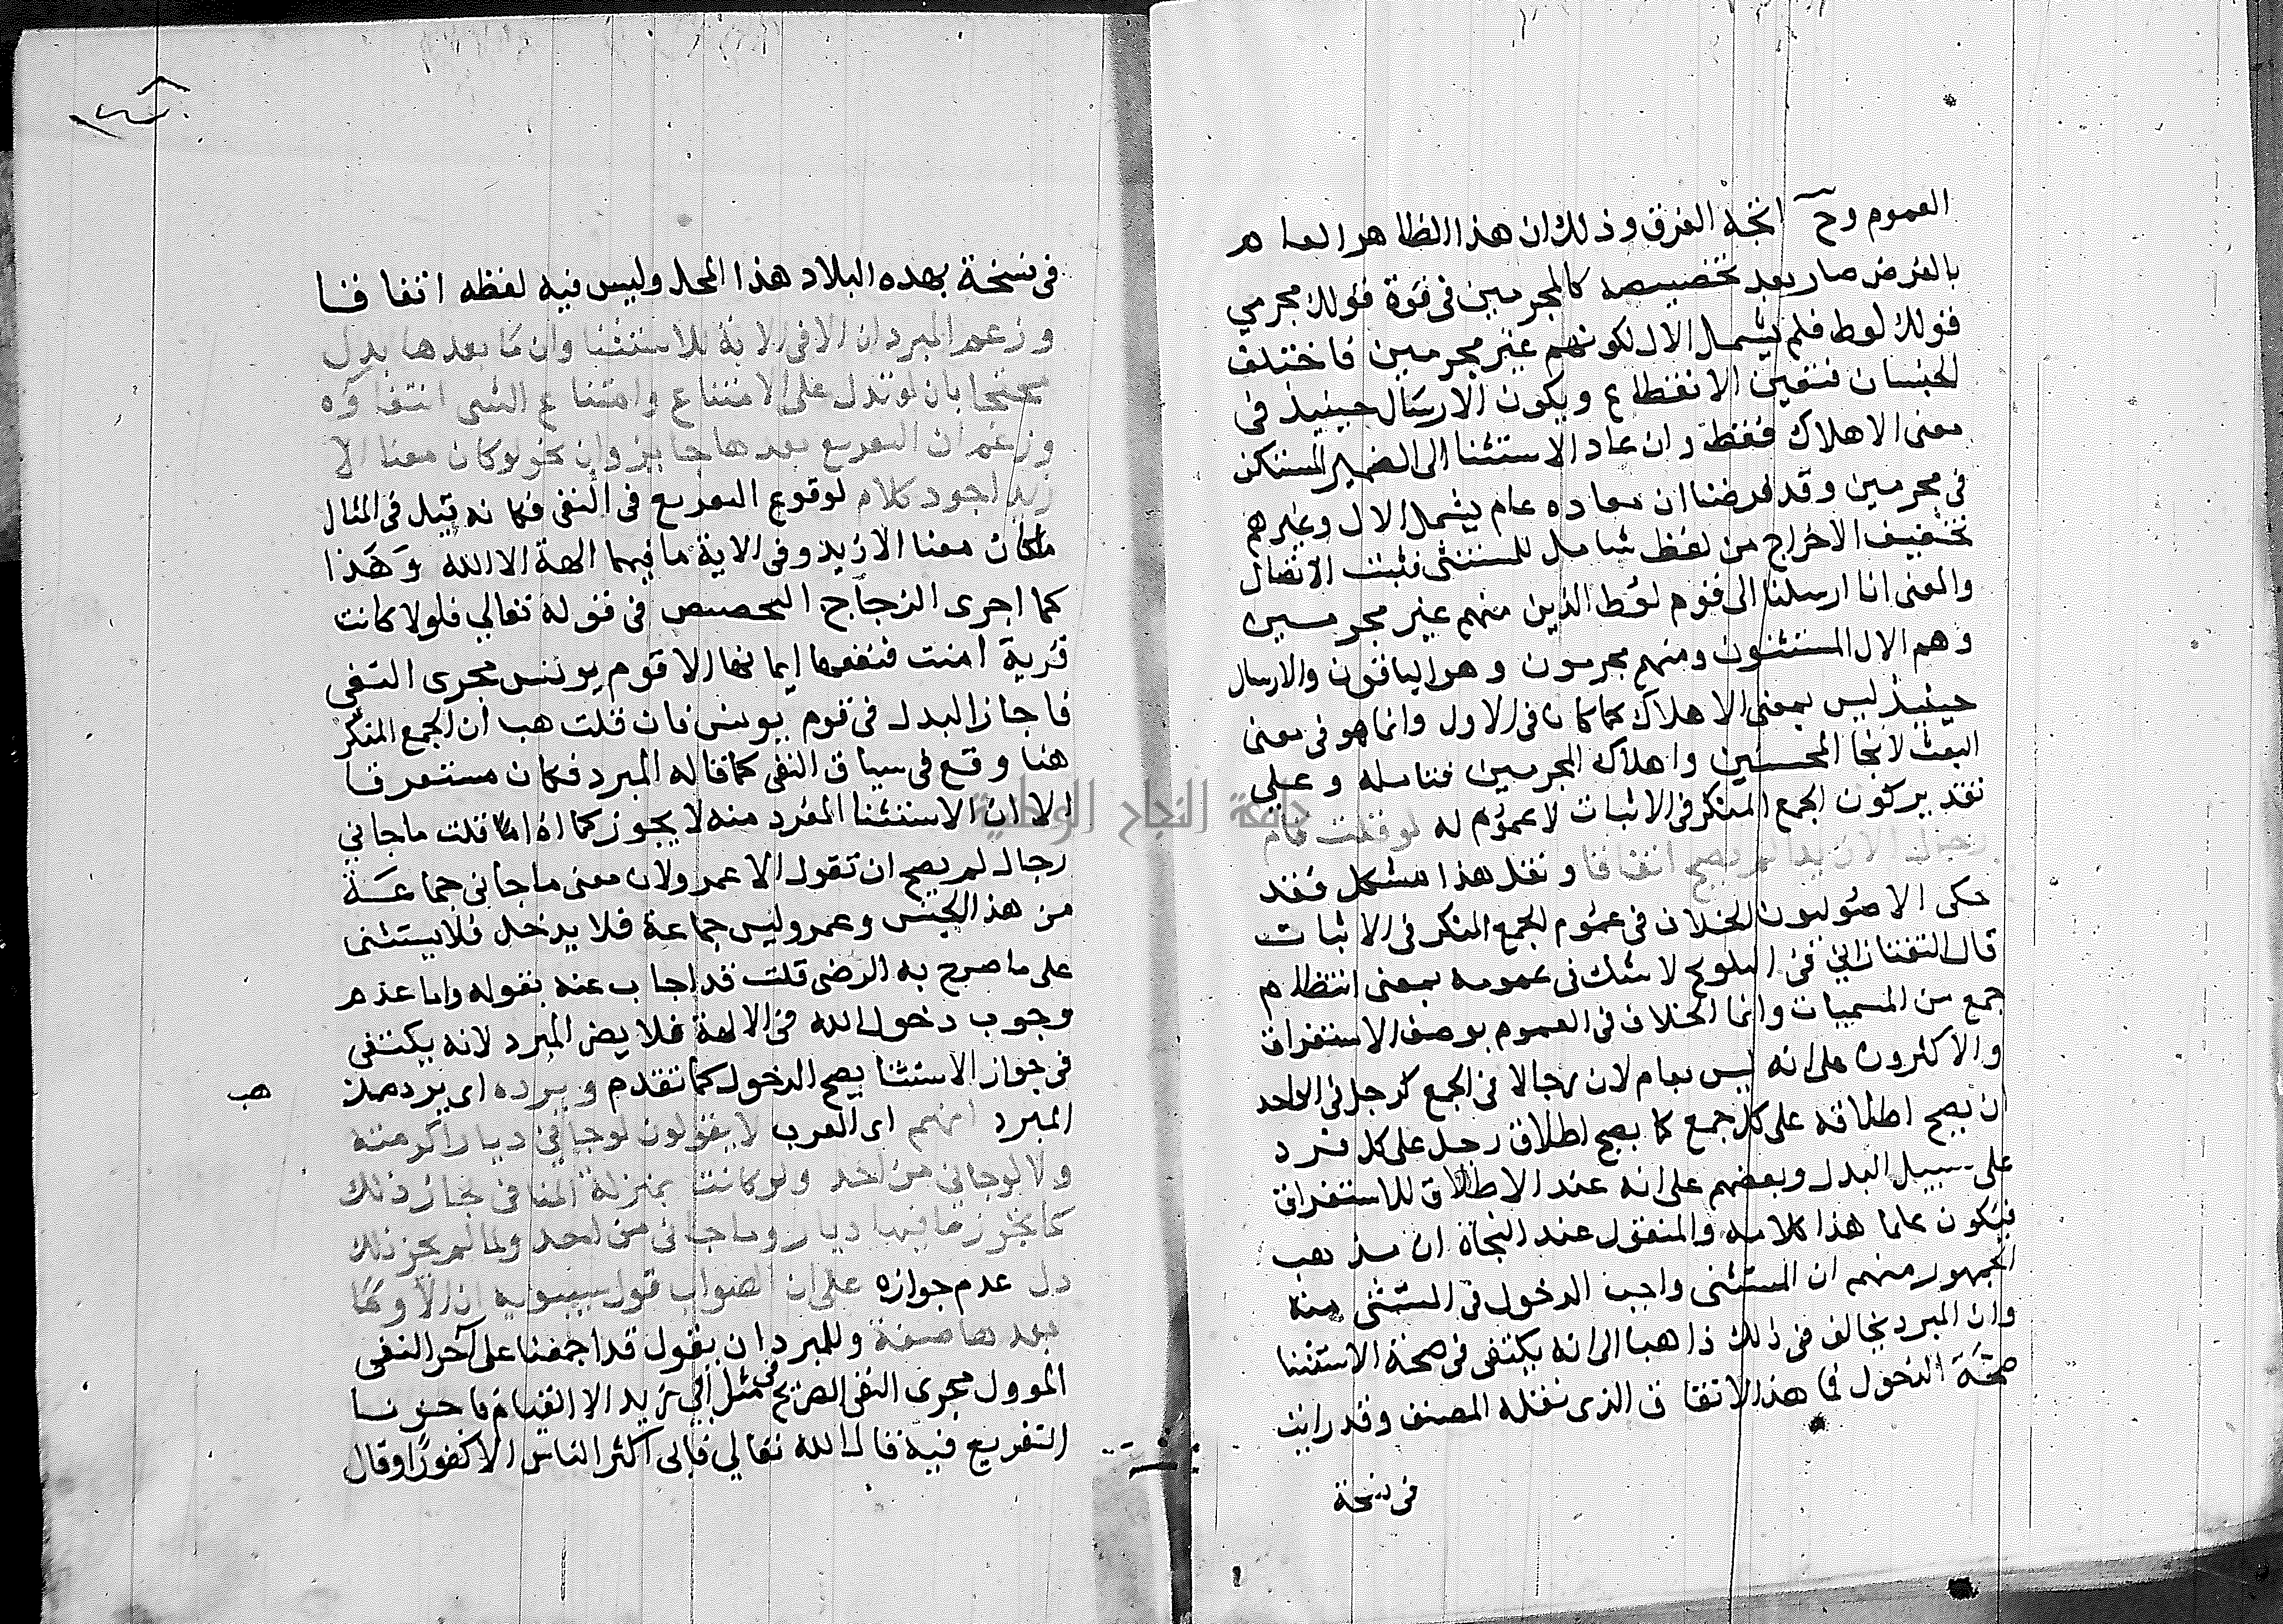 العموم وح اتجه الفرق وذلك ان هذا الظاهر العام
بالفرض صار بعد تخصيصه كالمجرمين في قوة قولك مجرمي
قولك لوط فلم يشمل الال لكونهم غير مجرمين فاختلف
الجنسان فتعين الانقطاع ويكون الارسال حينيذ في
معنى الاهلاك فقط وان عاد الاستثنا الى الضمير المستكن
في مجرمين وقد فرضنا ان معاده عام يشمل الال وغيرهم
تخفيف الاخراج من لفظ شامل للمستثنى فثبت الاتصال
والمعنى انا ارسلنا الى قوم لوط الذين منهم غير مجرمين
وهم الال المستثنون ومنهم مجرمون وهو الباقون والارسال
حينيذ ليس بمعنى الاهلاك كما كان في الاول وانما هو في معنى
البعث لانجا المحسنين واهلاك المجرمين فتامله وعلى
تقدير كون الجمع المنكر في الاثبات لا عموم له لو قلت قام
رجال الا زيدا لم يصح اتفاقا ونقل هذا مشكل فقد
حكى الاصوليون الخلاف في عموم الجمع المنكر في الاثبات
قال التفتازاني في التلويح لا شك في عمومه بمعنى انتظام
جمع من المسميات وانما الخلاف في العموم بوصف الاستغراق
والاكثرون على انه ليس بعام لان رجالا في الجمع كرجل في الواحد
ان يصح اطلاقه على كل جمع كما يصح اطلاق رجل على كل فرد
على سبيل البدل وبعضهم على انه عند الاطلاق للاستغراق
فيكون عاما هذا كلامه والمنقول عند النحاة ان مذهب
الجمهور منهم ان المستثنى واجب الدخول في المستثنى منه
وان المبرد يخالف في ذلك ذاهبا الى انه يكتفى في صحة الاستثنا
صحة الدخول فما هذا الاتفاق الذي نقله المصنف وقد رايت
في نسخة
في نسخة بهده البلاد هذا المحل وليس فيه لفظه اتفاقا
وزعم المبرد ان الا في الاية للاستثنا وان ما بعدها بدل
محتجا بان لو تدل على الامتناع وامتناع الشي انتفاوه
وزعم ان التفريع بعدها جايز وان نحو لو كان معنا الا
زيد اجود كلام لوقوع التفريع في النفي فكانه قيل في المثال
ما كان معنا الا زيد وفي الاية ما فيهما الهة الا الله وهذا
كما اجرى الزجاج التحضيض في قوله تعالي فلولا كانت
قرية امنت فنفعها ايمانها الا قوم يونس مجرى النفي
فاجاز البدل في قوم يونس فان قلت هب ان الجمع المنكر
هنا وقع في سياق النفي كما قاله المبرد فكان مستغرقا
الا ان الاستثنا المفرد منه لا يجوز كما اذا قلت ما جاني
رجال لم يصح ان تقول الا عمرو لان معنى ما جاني جماعة
من هذا الجنس وعمرو ليس جماعة فلا يدخل فلا يستثنى
على ما صرح به الرضى قلت قد اجاب عنه بقوله واما عدم
وجوب دخول الله في الالهة فلا يضر المبرد لانه يكتفى
في جواز الاستثنا يصح الدخول كما تقدم ويرده اى يرد مذ
هب
المبرد انهم اى العرب لا يقولون لو جاني ديار اكرمته
ولا لو جاني من احد ولو كانت بمنزلة النافى جاز ذلك
كما يجوز ما فيها ديار وما جاني من احد ولما لم يجز ذلك
دل عدم جوازه على ان الصواب قول سيبويه ان الا وما
بعدها صفة وللمبرد ان يقول قد اجمعنا على اجرا النفى
الموول مجرى النفى الصريح في مثل ابي زيد الا القيام فاجزنا
التفريع فيه قال الله تعالي فابى اكثر الناس الا كفورا وقال
جامعة النجاح الوطنية